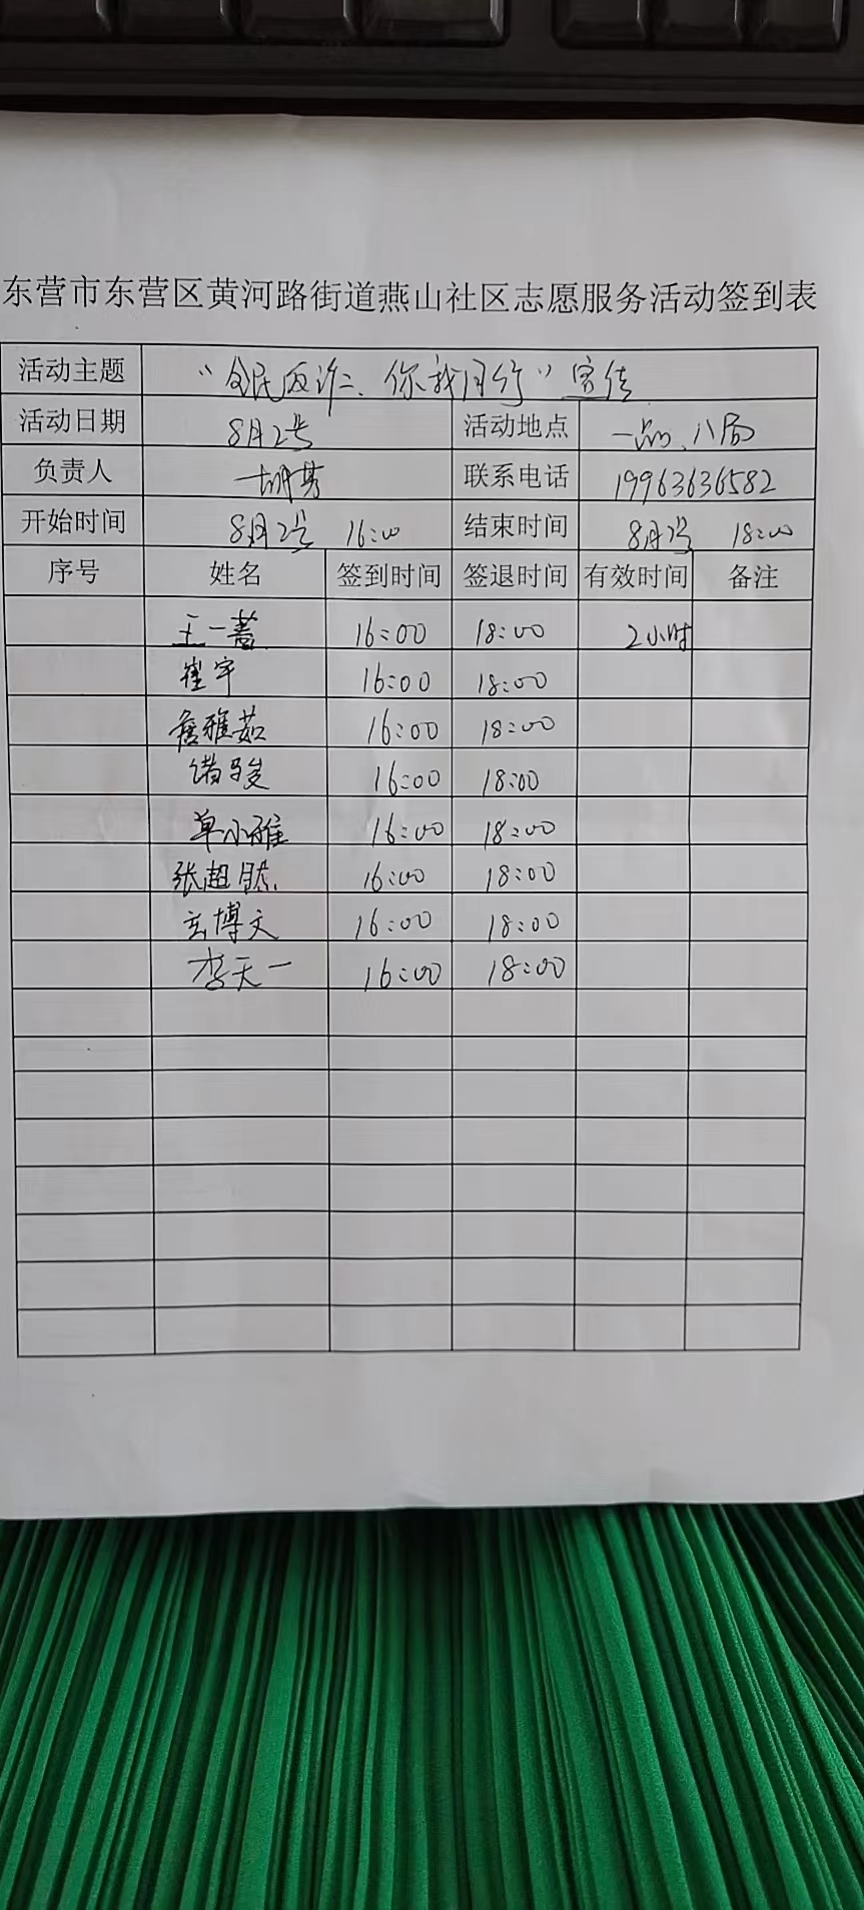 东营市东营区黄河路街道燕山社区志愿服务活动签到表
活动主题 “全民反诈、你我同行”宣传
活动日期 8月2号 活动地点 一品、八局
负责人 胡芳 联系电话 19963636582
开始时间 8月2号 16:00 结束时间 8月2号 18:00
序号 姓名 签到时间 签退时间 有效时间 备注
王一蔷 16:00 18:00 2小时
崔宇 16:00 18:00
詹雅茹 16:00 18:00
褚骏 16:00 18:00
单小雅 16:00 18:00
张超 16:00 18:00
玄博文 16:00 18:00
李天一 16:00 18:00